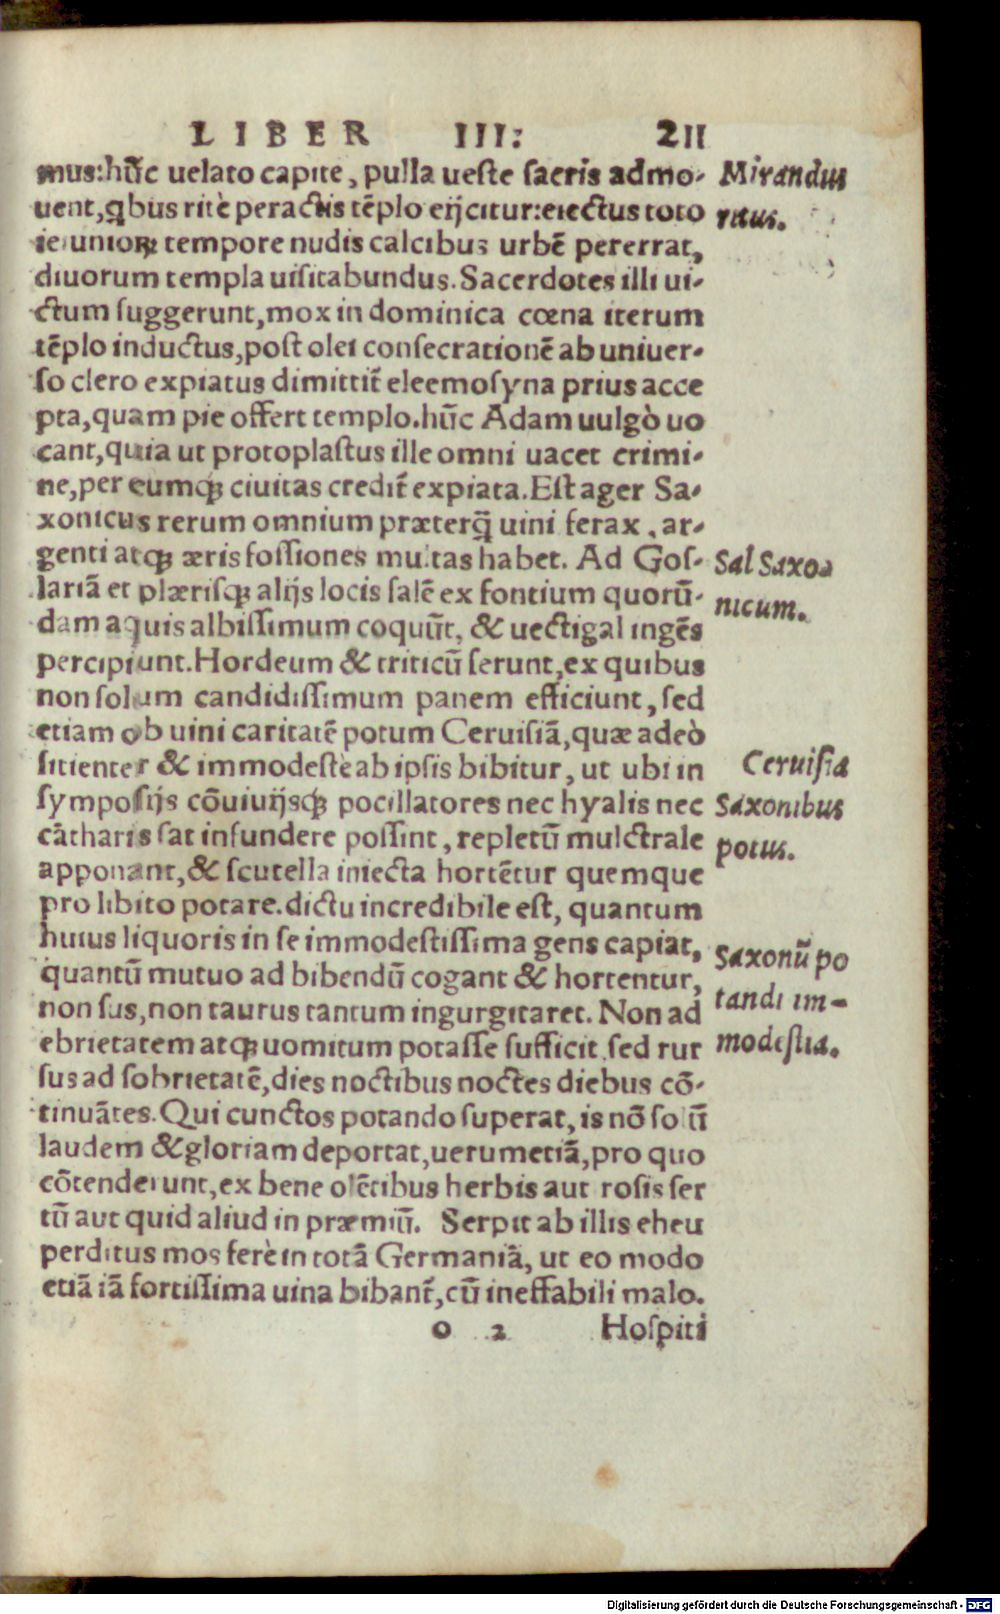 LIBER III: 211
mus:hūc uelato capite, pulla ueste sacris admo-
uent, q̄bus ritè peractis tēplo eijcitur:eiectus toto
ieiuniorꝝ tempore nudis calcibus urbē pererrat,
diuorum templa uisitabundus. Sacerdotes illi ui-
ctum suggerunt, mox in dominica cœna iterum
tēplo inductus, post olei consecrationē ab uniuer-
so clero expiatus dimittit̄ eleemosyna prius acce
pta, quam pie offert templo. hūc Adam uulgò uo
cant, quia ut protoplastus ille omni uacet crimi-
ne, per eumqꝫ ciuitas credit̄ expiata. Est ager Sa-
xonicus rerum omnium præterq̄ uini ferax, ar-
genti atqꝫ æris fossiones multas habet. Ad Gos-
lariā et plærisqꝫ alijs locis salē ex fontium quorū-
dam aquis albissimum coquūt, & uectigal ingēs
percipiunt. Hordeum & triticū serunt, ex quibus
non solum candidissimum panem efficiunt, sed
etiam ob uini caritatē potum Ceruisiā, quæ adeò
sitienter & immodestè ab ipsis bibitur, ut ubi in
symposijs cōuiuijsqꝫ pocillatores nec hyalis nec
cātharis sat infundere possint, repletū mulctrale
apponant, & scutella iniecta hortētur quemque
pro libito potare. dictu incredibile est, quantum
huius liquoris in se immodestissima gens capiat,
quantū mutuo ad bibendū cogant & hortentur,
non sus, non taurus tantum ingurgitaret. Non ad
ebrietatem atqꝫ uomitum potasse sufficit, sed rur
sus ad sobrietatē, dies noctibus noctes diebus cō-
tinuātes. Qui cunctos potando superat, is nō solū
laudem & gloriam deportat, uerumetiā, pro quo
cōtenderunt, ex bene olētibus herbis aut rosis ser
tū aut quid aliud in præmiū. Serpit ab illis eheu
perditus mos ferè in totā Germaniā, ut eo modo
etiā iā fortissima uina bibant̄, cū ineffabili malo.
o 2 Hospiti
Mirandus
ritus.
Sal Saxo-
nicum.
Ceruisia
Saxonibus
potus.
Saxonū po
tandi im-
modestia.
Digitalisierung gefördert durch die Deutsche Forschungsgemeinschaft - DFG